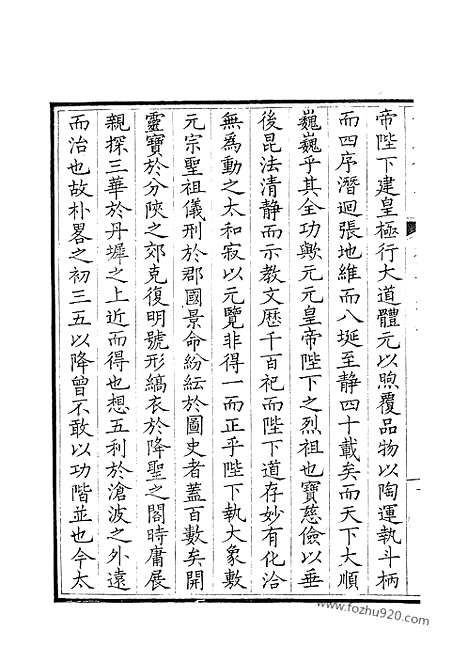 帝陛下建皇極行大道體元以煦覆品物以陶運執斗柄
而四序潛迴張地維而八埏至静四十載矣而天下大順
巍巍乎其全功歟元元皇帝陛下之烈祖也寶慈儉以垂
後昆法清静而示教文歴千百祀而陛下道存妙有化洽
無為動之太和寂以元覽非得一而正乎陛下執大象敷
元宗聖祖儀刑於郡國景命紛紜於圖史者蓋百數矣開
靈寶於分陝之郊克復明號形縞衣於降聖之閣時庸展
親探三華於丹墀之上近而得也想五利於滄波之外遠
而治也故朴畧之初三五以降曾不敢以功階並也今太
www.fozhu920.com